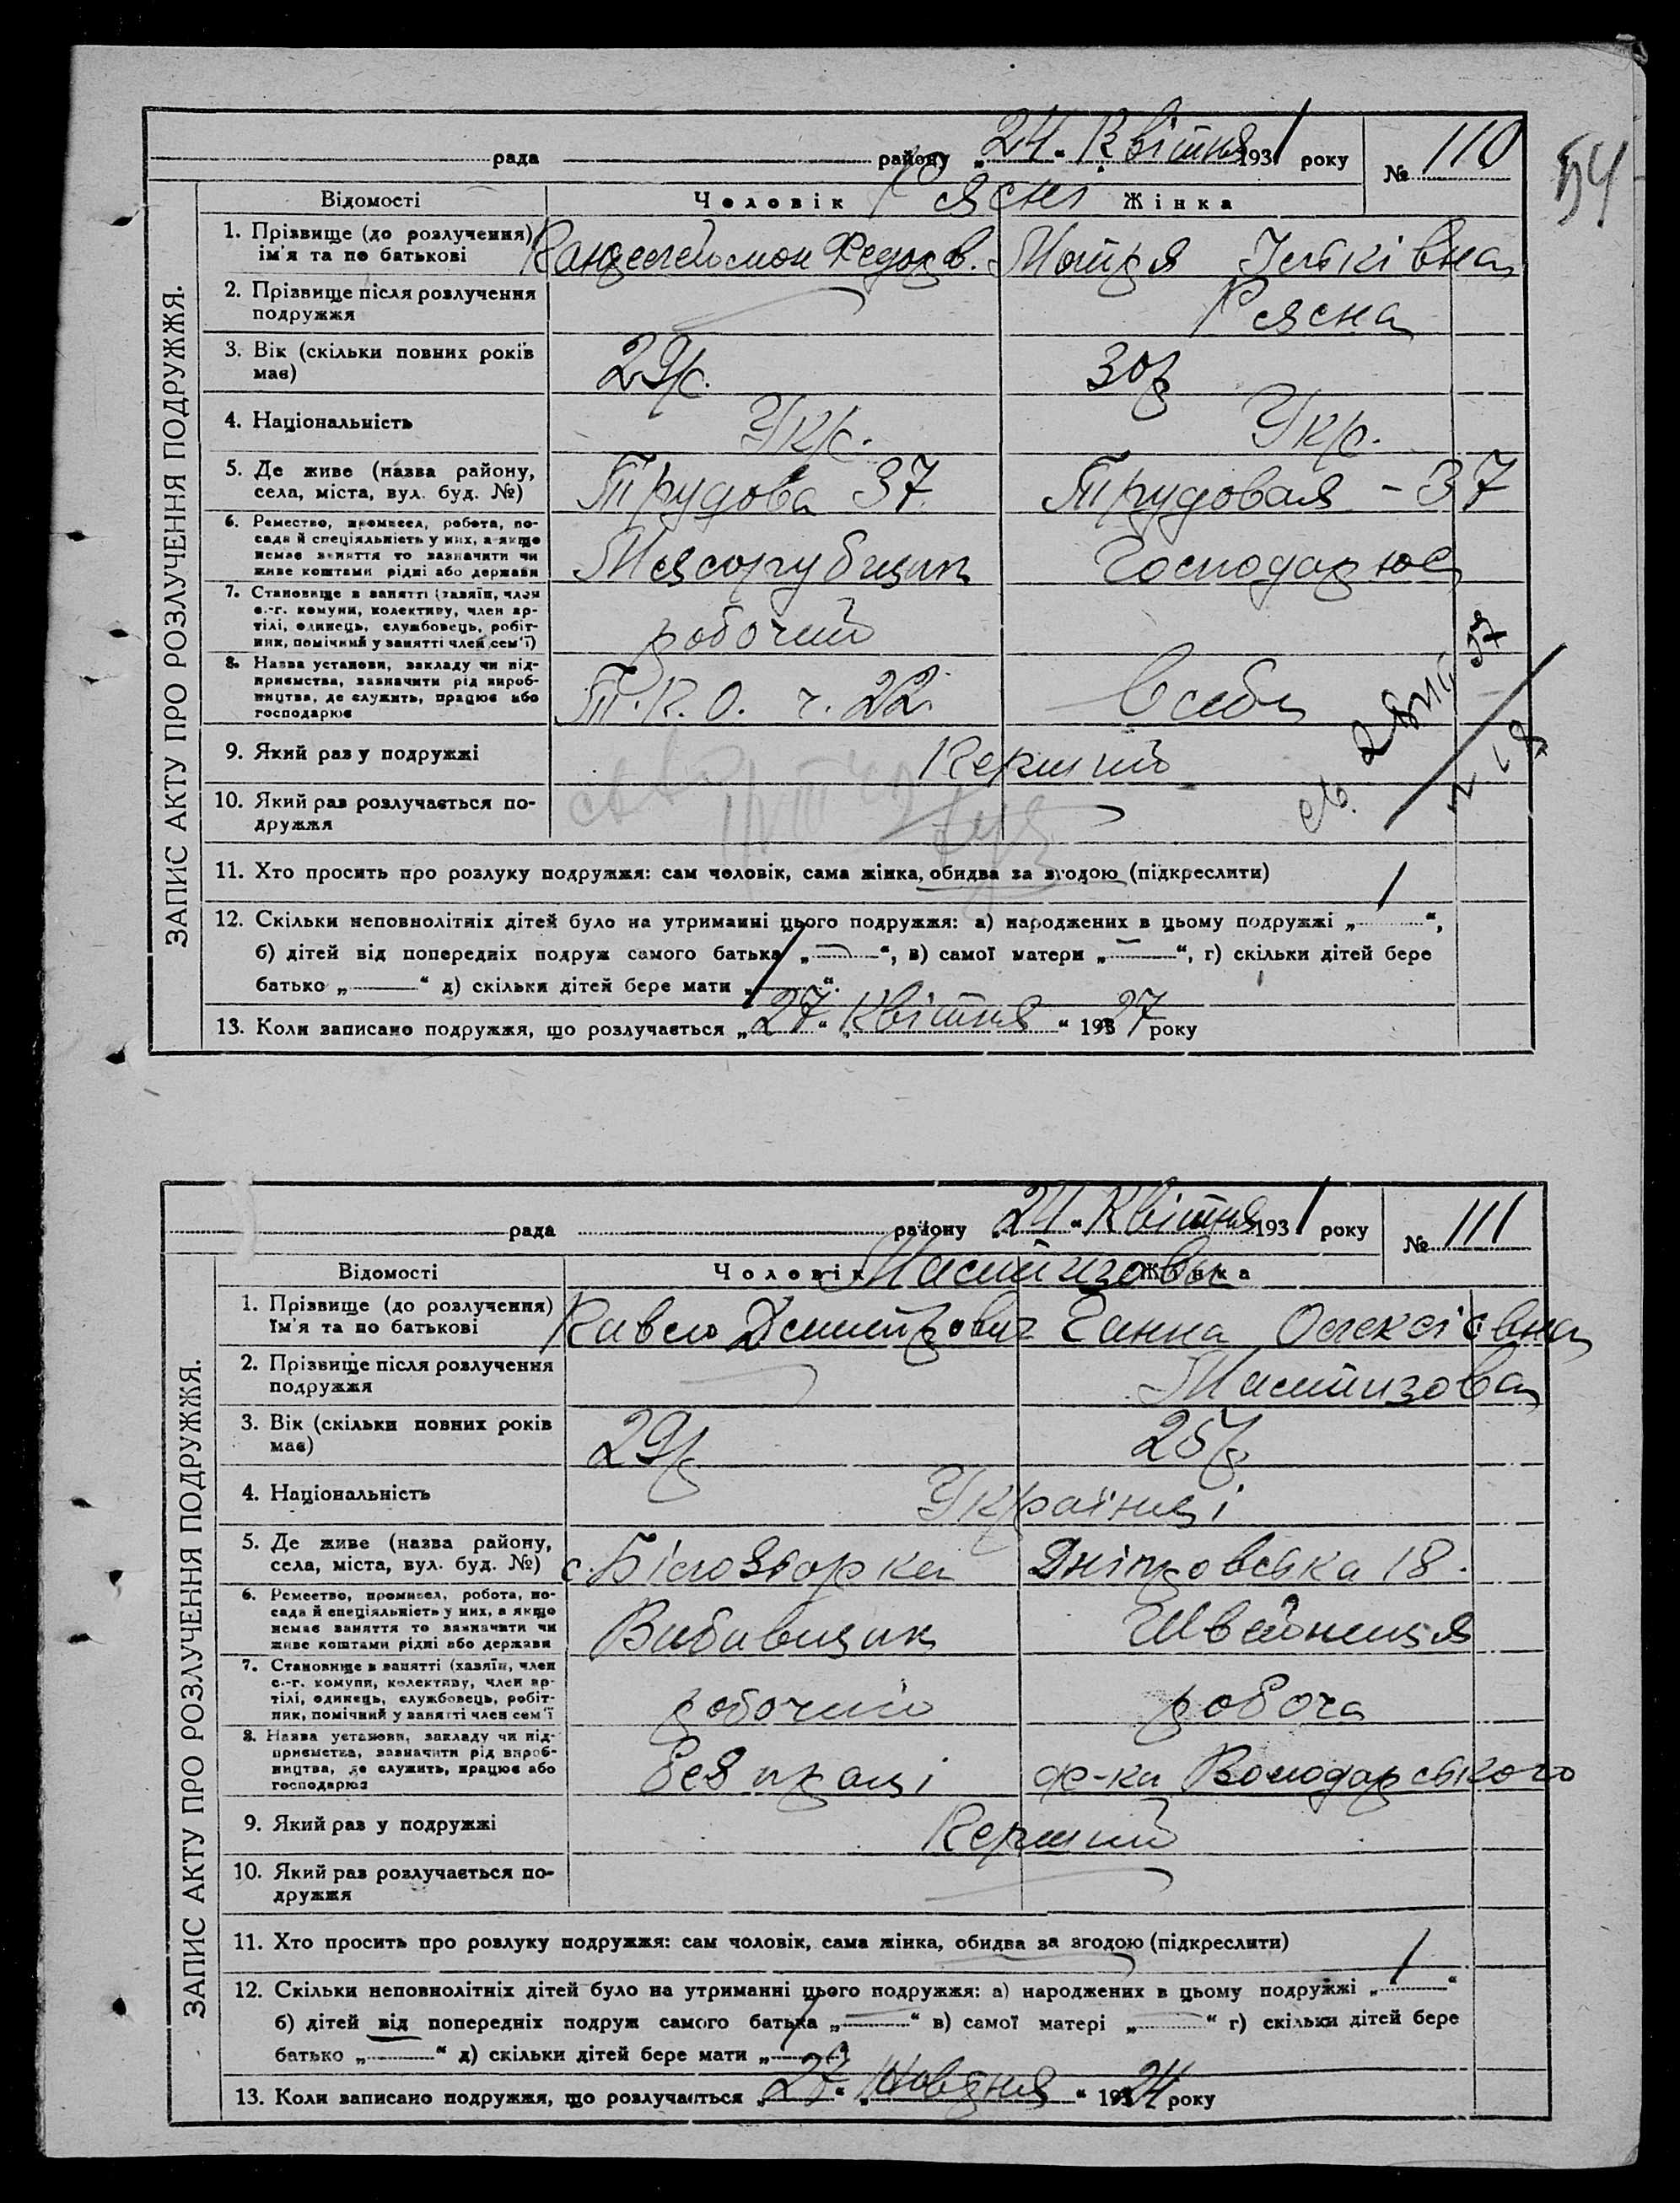 54
рада району „24“ Квітня 1931 року № 110
Відомості Чоловік Рясні Жінка
1. Прізвище (до розлучення) ім'я та по батькові Федоров. Мотря Ільківна
2. Прізвище після розлучення подружжя Рясна
3. Вік (скільки повних років має) 29 р. 30 р
4. Національність Укр. Укр.
5. Де живе (назва району, села, міста, вул. буд. №) Трудова 37. Трудовая - 37
6. Ремество, промисел, робота, посада й спеціяльність у них, а якщо немає заняття то зазначити чи живе коштами рідні або держави Мясорубщик Господарює
7. Становище в занятті (хазяїн, член с.-г. комуни, колективу, член артілі, одинець, службовець, робітник, помічний у занятті член сем'ї) робочий
8. Назва установи, закладу чи підприємства, зазначити рід виробництва, де служить, працює або господарює Т.П.О. ч. 22. В себе
9. Який раз у подружжі Перший
10. Який раз розлучається подружжя
11. Хто просить про розлуку подружжя: сам чоловік, сама жінка, обидва за згодою (підкреслити)
12. Скільки неповнолітніх дітей було на утриманні цього подружжя: а) народжених в цьому подружжі „1“,
б) дітей від попередніх подруж самого батька „—“, в) самої матери „—“, г) скільки дітей бере
батько „—“ д) скільки дітей бере мати „1“.
13. Коли записано подружжя, що розлучається „27“ „Квітня“ 1927 року
ЗАПИС АКТУ ПРО РОЗЛУЧЕННЯ ПОДРУЖЖЯ.
рада району „24“ Квітня 1931 року № 111
Відомості Чоловік Жінка
1. Прізвище (до розлучення) ім'я та по батькові Павло Дмитрович Ганна Олексіївна
2. Прізвище після розлучення подружжя
3. Вік (скільки повних років має) 29 р 25 р
4. Національність Українці
5. Де живе (назва району, села, міста, вул. буд. №) с. Білозьорка Дніпровська 18.
6. Ремество, промисел, робота, посада й спеціяльність у них, а якщо немає заняття то зазначити чи живе коштами рідні або держави Вибивщик Швейниця
7. Становище в занятті (хазяїн, член с.-г. комуни, колективу, член артілі, одинець, службовець, робітник, помічний у занятті член сем'ї робочий робоча
8. Назва установи, закладу чи підприємства, зазначити рід виробництва, де служить, працює або господарює Без праці ф-ка Володарського
9. Який раз у подружжі Перший
10. Який раз розлучається подружжя
11. Хто просить про розлуку подружжя: сам чоловік, сама жінка, обидва за згодою (підкреслити)
12. Скільки неповнолітніх дітей було на утриманні цього подружжя: а) народжених в цьому подружжі „1“
б) дітей від попередніх подруж самого батька „—“ в) самої матері „—“ г) скільки дітей бере
батько „—“ д) скільки дітей бере мати „1“
13. Коли записано подружжя, що розлучається „27“ „Жовтня“ 1924 року
ЗАПИС АКТУ ПРО РОЗЛУЧЕННЯ ПОДРУЖЖЯ.